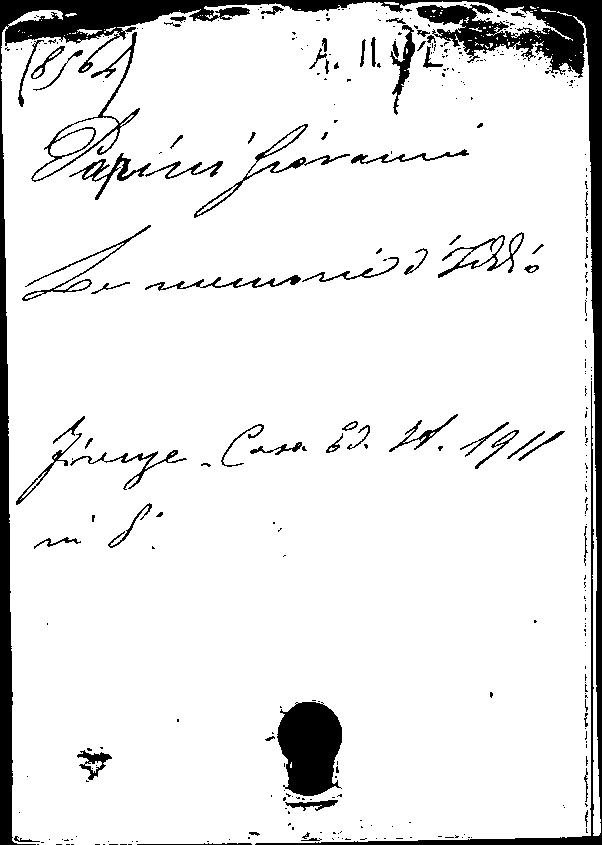 (8564) A. II.
Papini Giovanni
Le memorie d'Iddio
Firenze - Casa Ed. It. 1911
in 8°.